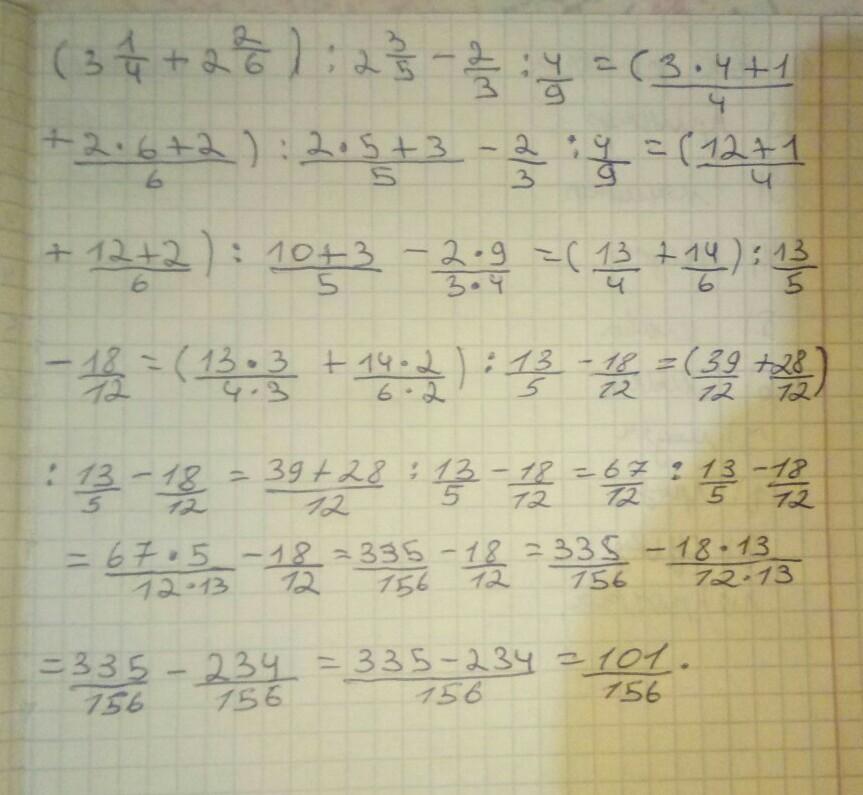 (3 1/4 + 2 2/6) : 2 3/5 - 2/3 : 4/9 = (3·4+1/4
+ 2·6+2/6) : 2·5+3/5 - 2/3 : 4/9 = (12+1/4
+ 12+2/6) : 10+3/5 - 2·9/3·4 = (13/4 + 14/6) : 13/5
- 18/12 = (13·3/4·3 + 14·2/6·2) : 13/5 - 18/12 = (39/12 + 28/12)
: 13/5 - 18/12 = 39+28/12 : 13/5 - 18/12 = 67/12 : 13/5 - 18/12
= 67·5/12·13 - 18/12 = 335/156 - 18/12 = 335/156 - 18·13/12·13
= 335/156 - 234/156 = 335-234/156 = 101/156.